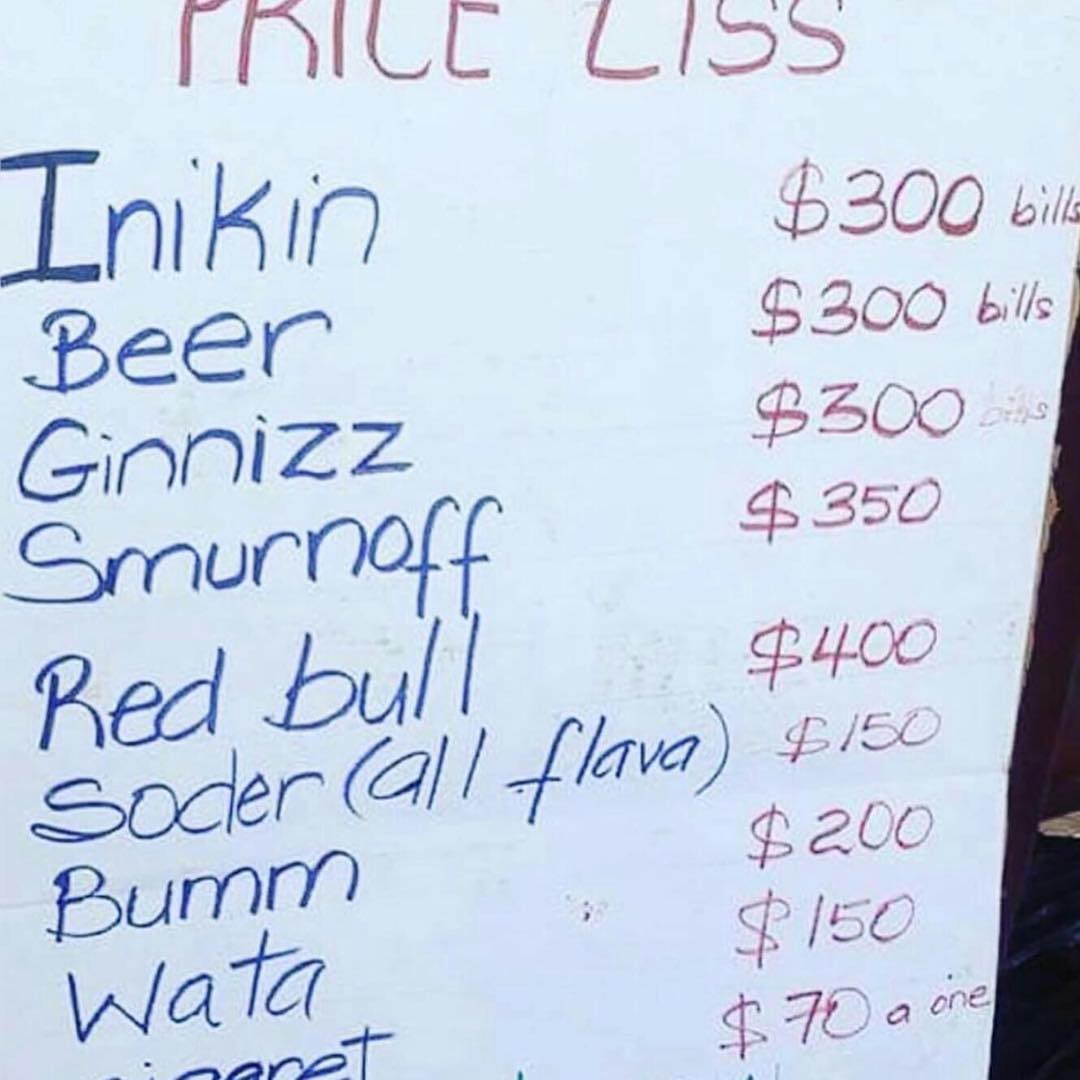 PRICE LISS
Inikin $300 bills
Beer $300 bills
Ginnizz $300 bills
Smurnoff $350
Red bull $400
Soder (all flava) $150
Bumm $200
Wata $150
$70 a one